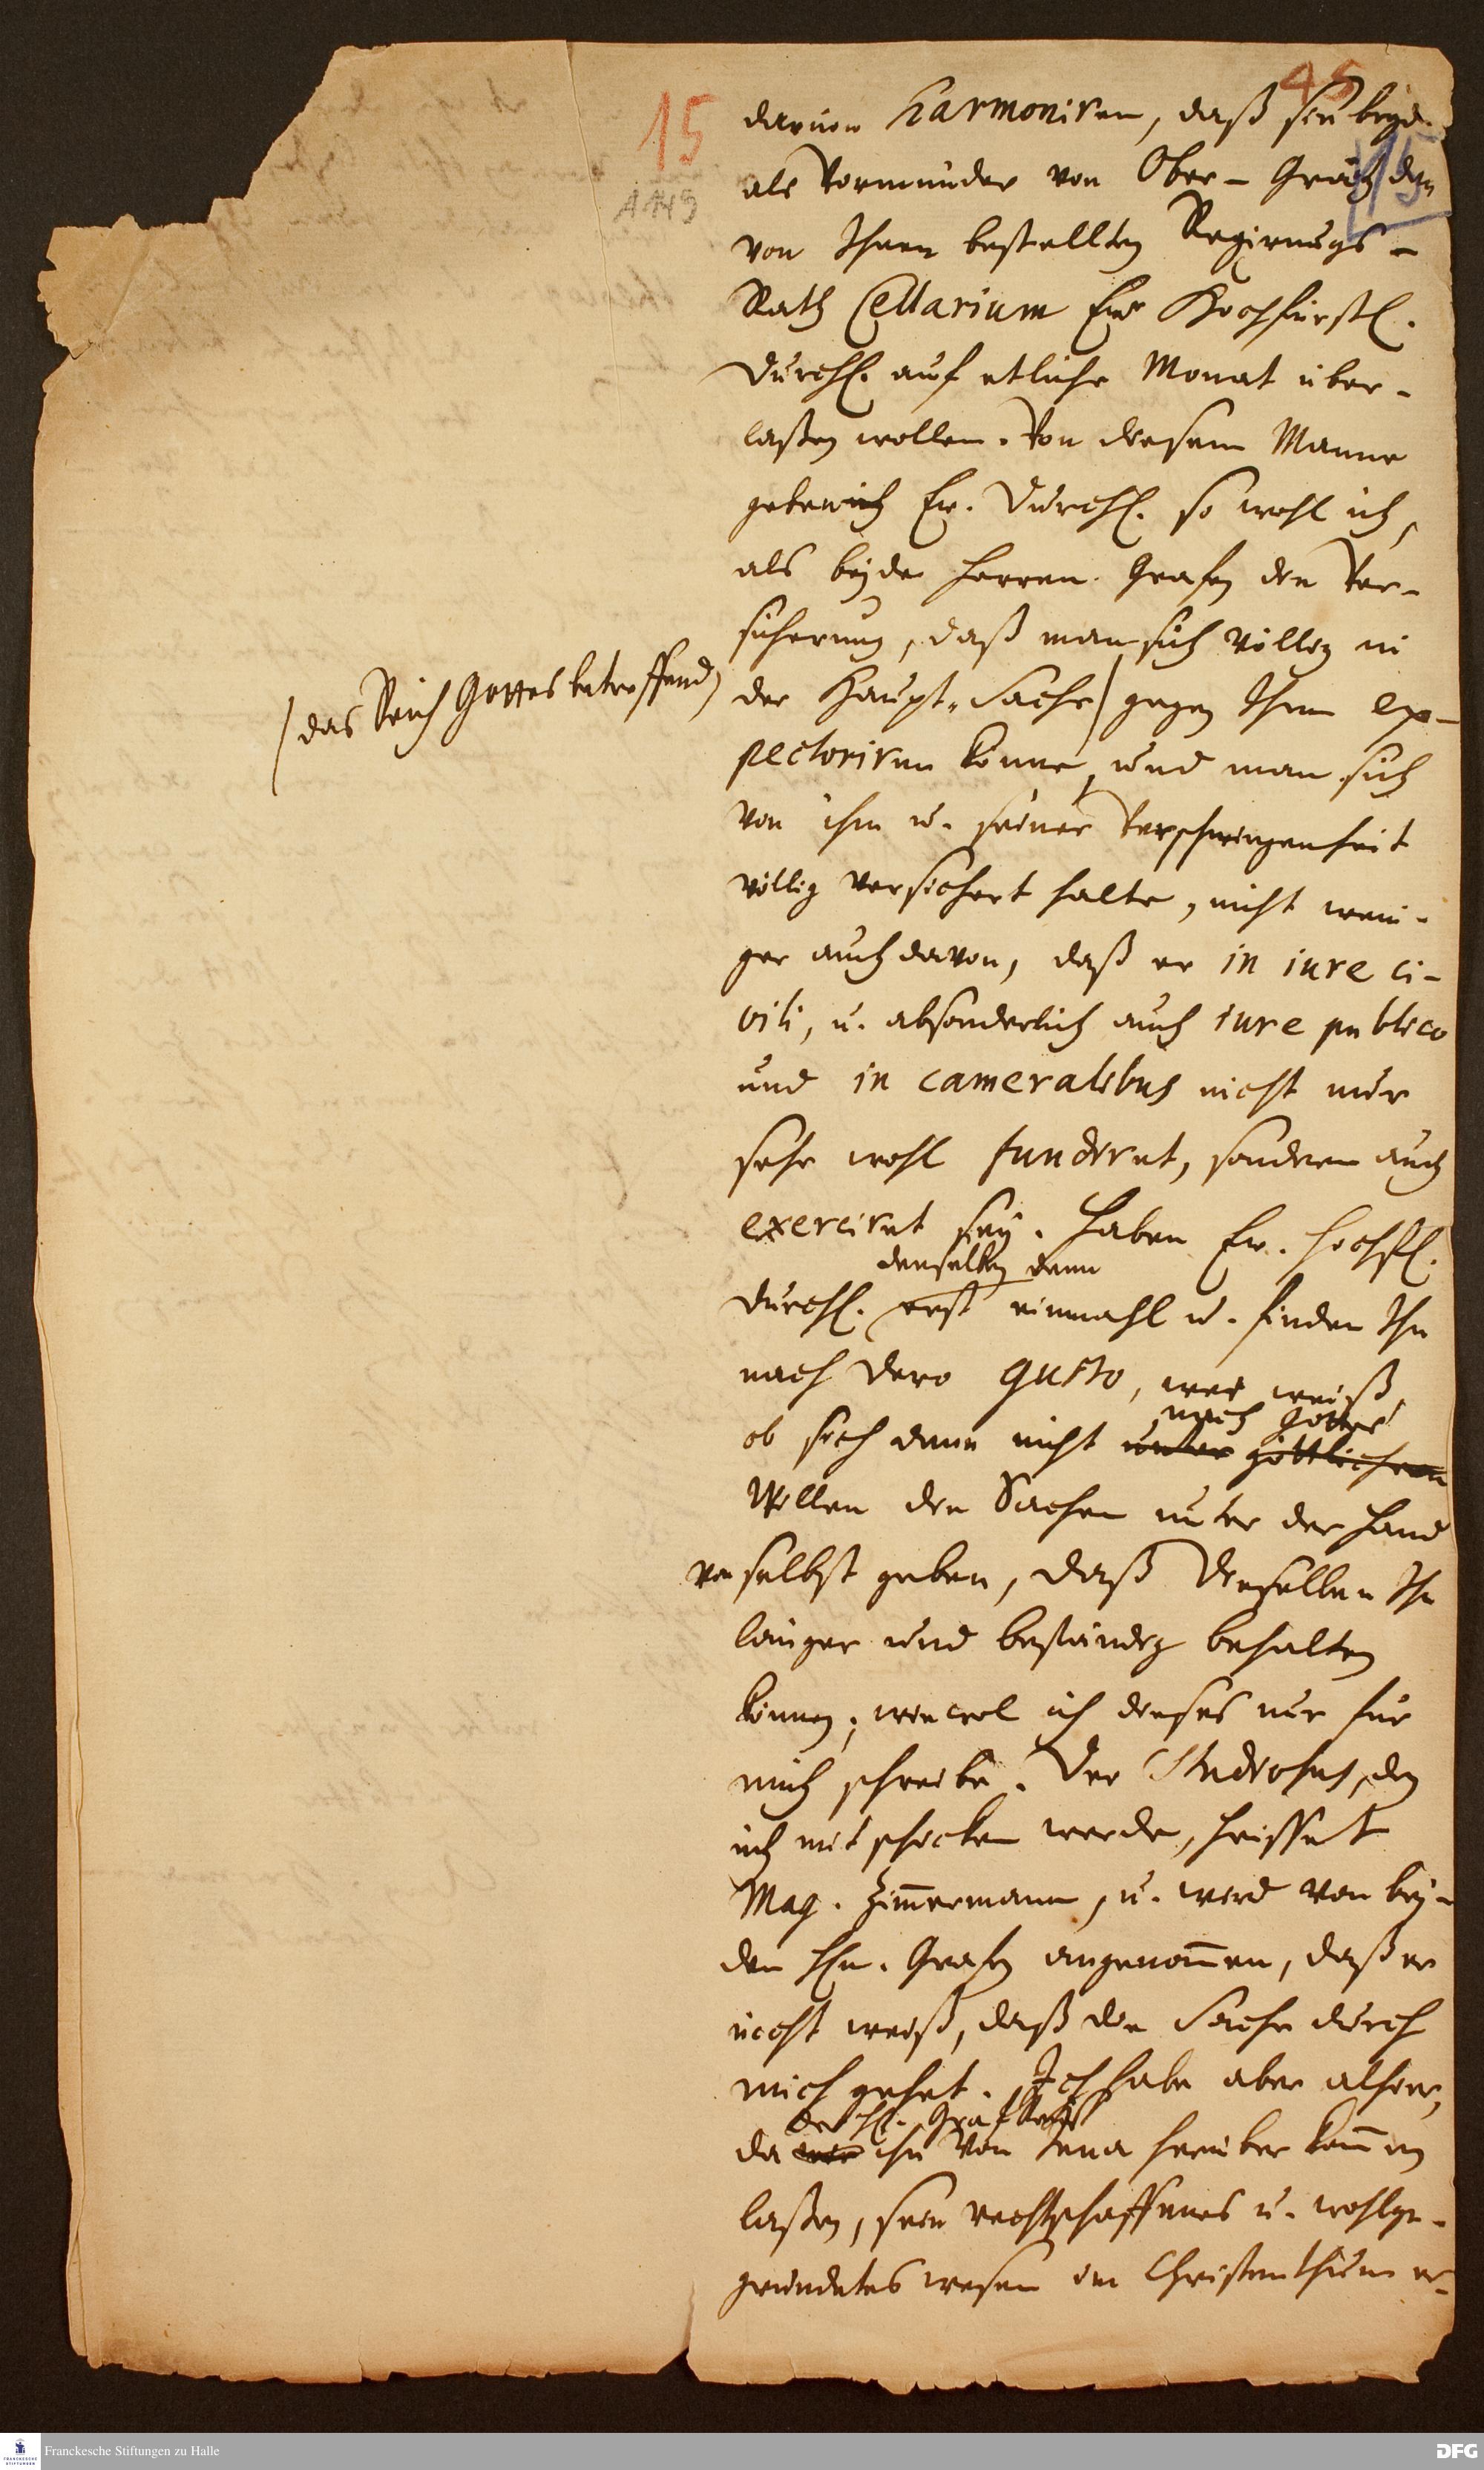 45
15
A 149
darinn harmoniren, daß sie beyde
als Vormünder von Ober-Gräitz den
von Ihnen bestellten Regierungs-
Rath Cellarium Ew. Hochfürstl.
Durchl. auf etliche Monat über-
laßen wollen. Von diesem Manne
geben Ew. Durchl. so wohl ich,
als beyde Herren Grafen die Ver-
sicherung, daß man sich völlig in
der Haupt-Sache / gegen Ihm ex-
(das Reich Gottes betreffend)
pectoriren könne, und man sich
von ihm u. seiner Verschwiegenheit
völlig versichert halte, nicht weni-
ger auch davon, daß er in iure ci-
vili, u. absonderlich auch iure publico
und in cameralibus nicht nur
sehr wohl fundiret, sondern auch
exerciret sey. Haben Ew. Hochfl.
denselben denn
Durchl. erst einmahl u. finden Ihn
nach Dero Gusto, wer weiß,
nach Gottes
ob sich dann nicht unter göttlichem
Willen die Sachen unter der Hand
von selbst geben, daß Dieselben Ihn
länger und beständig behalten
können; wiewol ich dieses nur für
mich schreibe. Der Studiosus, den
ich mit schicken werde, heisset
Mag. Zimmermann, u. wird von bey-
den Hn. Grafen angenommen, daß er
nicht weiß, daß die Sache durch
mich gehet. Ich habe aber alhier,
der H. Graf
da ihn von Jena herüber kommen
laßen, sein rechtschaffenes u. wohlge-
gründetes wesen im Christenthum er-
Franckesche Stiftungen zu Halle
DFG